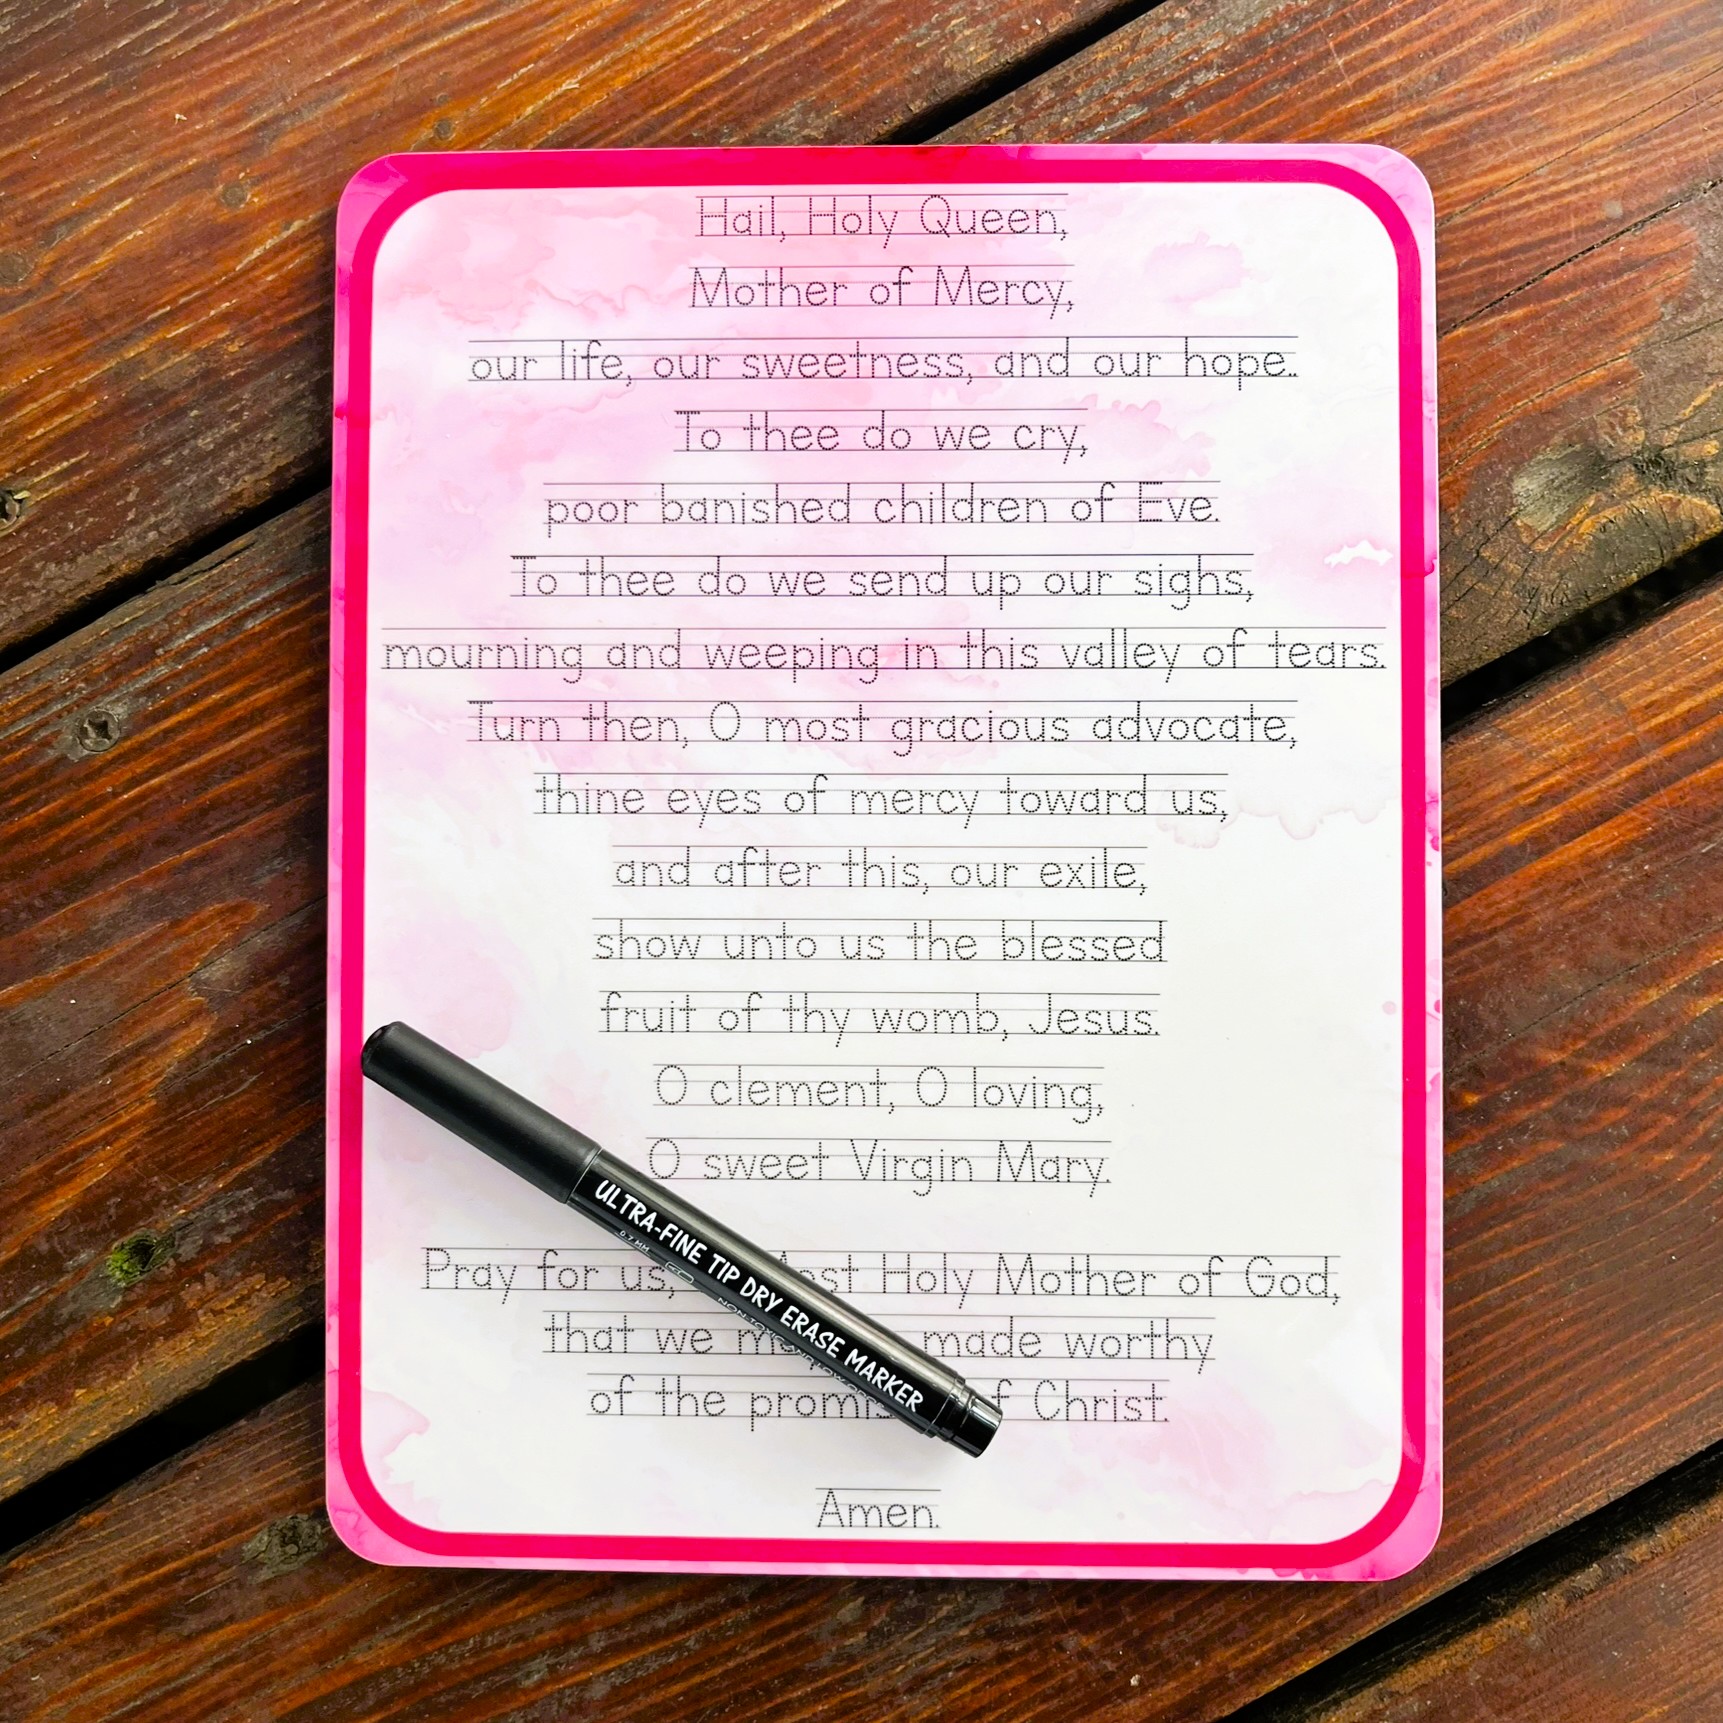 Hail, Holy Queen,
Mother of Mercy,
our life, our sweetness, and our hope..
To thee do we cry,
poor banished children of Eve.
To thee do we send up our sighs,
mourning and weeping in this valley of tears.
Turn then, O most gracious advocate,
thine eyes of mercy toward us,
and after this, our exile,
show unto us the blessed
fruit of thy womb, Jesus.
O clement, O loving,
O sweet Virgin Mary.
Pray for us, Holy Mother of God,
that we made worthy
of the Christ.
Amen.
ULTRA-FINE TIP DRY ERASE MARKER
0.7 MM